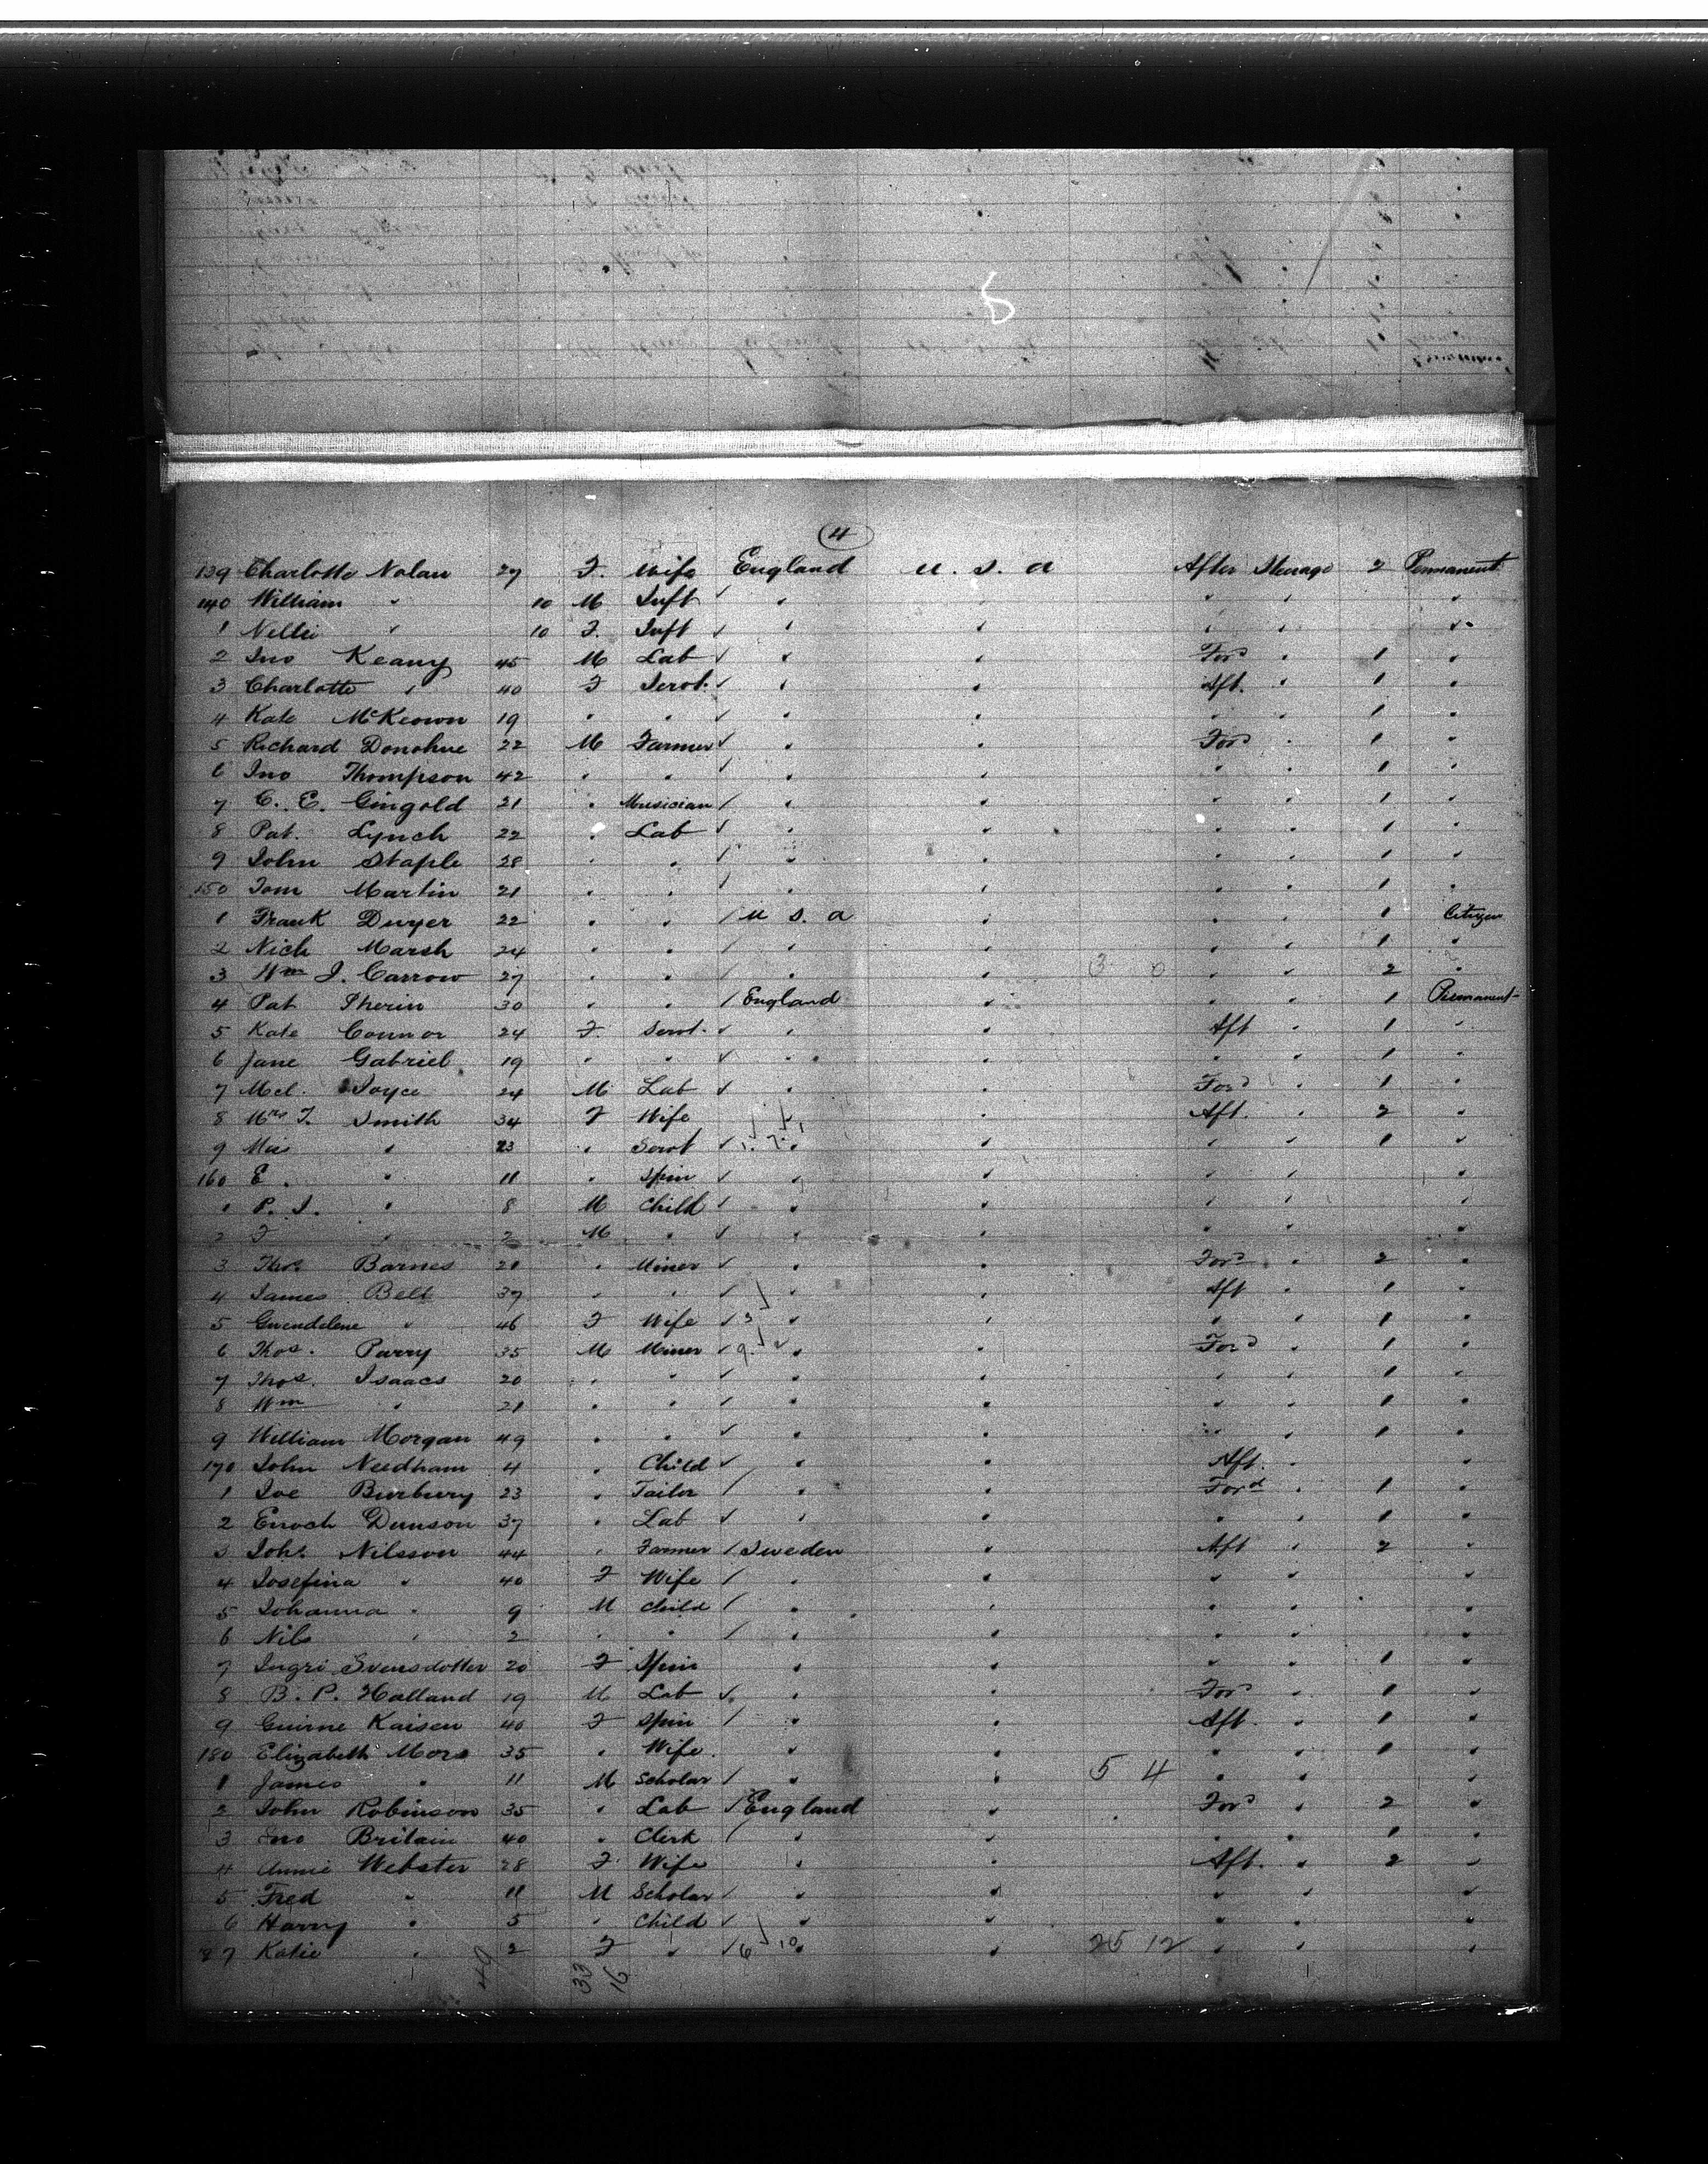 4
139 Charlotte Nolan 29 F. Wife England U. S. A After Steerage 2 Permanent
140 William " 10 M Inft " " " " "
1 Nellie " 10 F. Inft " " " " "
2 Jno Keany 45 M Lab " " For'd " 1 "
3 Charlotte " 40 F Servt. " " Aft. " 1 "
4 Kate McKeown 19 " " " " " " 1 "
5 Richard Donohue 22 M Farmer " " For'd " 1 "
6 Jno Thompson 42 " " " " " " 1 "
7 C. E. Gingold 21 " Musician " " " " 1 "
8 Pat. Lynch 22 " Lab " " " " 1 "
9 John Staple 28 " " " " " " 1 "
150 Tom Martin 21 " " " " " " 1 "
1 Frank Dwyer 22 " " U S. A " " " 1 Citizen
2 Nich Marsh 24 " " " " " " 1 "
3 Wm J. Carrow 27 " " " " 3 0 " " 2 "
4 Pat Therin 30 " " England " " " 1 Permanent
5 Kate Connor 24 F. Servt. " " Aft " 1 "
6 Jane Gabriel 19 " " " " " " 1 "
7 Mcl. Joyce 24 M Lab " " For'd " 1 "
8 Mrs T. Smith 34 F Wife " " Aft. " 2 "
9 Miss " 23 " Servt " " " " 1 "
160 E. " 11 " Spin " " " " "
1 P. J. " 8 M Child " " " " "
2 F " 2 M " " " " " "
3 Thos Barnes 20 " Miner " " For'd " 2 "
4 James Bell 37 " " " " Aft " 1 "
5 Gwendeline " 46 F Wife 3 " " " " 1 "
6 Thos. Parry 35 M Miner 9 " " For'd " 1 "
7 Thos. Isaacs 20 " " " " " " 1 "
8 Wm " 21 " " " " " " 1 "
9 William Morgan 49 " " " " " " 1 "
170 John Needham 4 " Child " " Aft. " "
1 Joe Burbury 23 " Tailor " " For'd " 1 "
2 Enoch Dunson 37 " Lab " " " " 1 "
3 Joh. Nilsson 44 " Farmer Sweden " Aft " 2 "
4 Josefina " 40 F Wife " " " " "
5 Johanna " 9 M Child " " " " "
6 Nils " 2 " " " " " " "
7 Ingri Svensdotter 20 F Spin " " " " 1 "
8 B. P. Halland 19 M Lab " " For'd " 1 "
9 Guirne Kaisen 40 F Spin " " Aft. " 1 "
180 Elizabeth Mors 35 " Wife " " " " 1 "
1 James " 11 M Scholar " " 5 4 " " "
2 John Robinson 35 " Lab England " For'd " 2 "
3 Jno Britain 40 " Clerk " " " " 1 "
4 Annie Webster 28 F. Wife " " Aft. " 2 "
5 Fred " 11 M Scholar " " " " "
6 Harry " 5 " Child " " " " "
87 Katie " 2 F " 6 10 " " 25 12 " " "
49 33 16